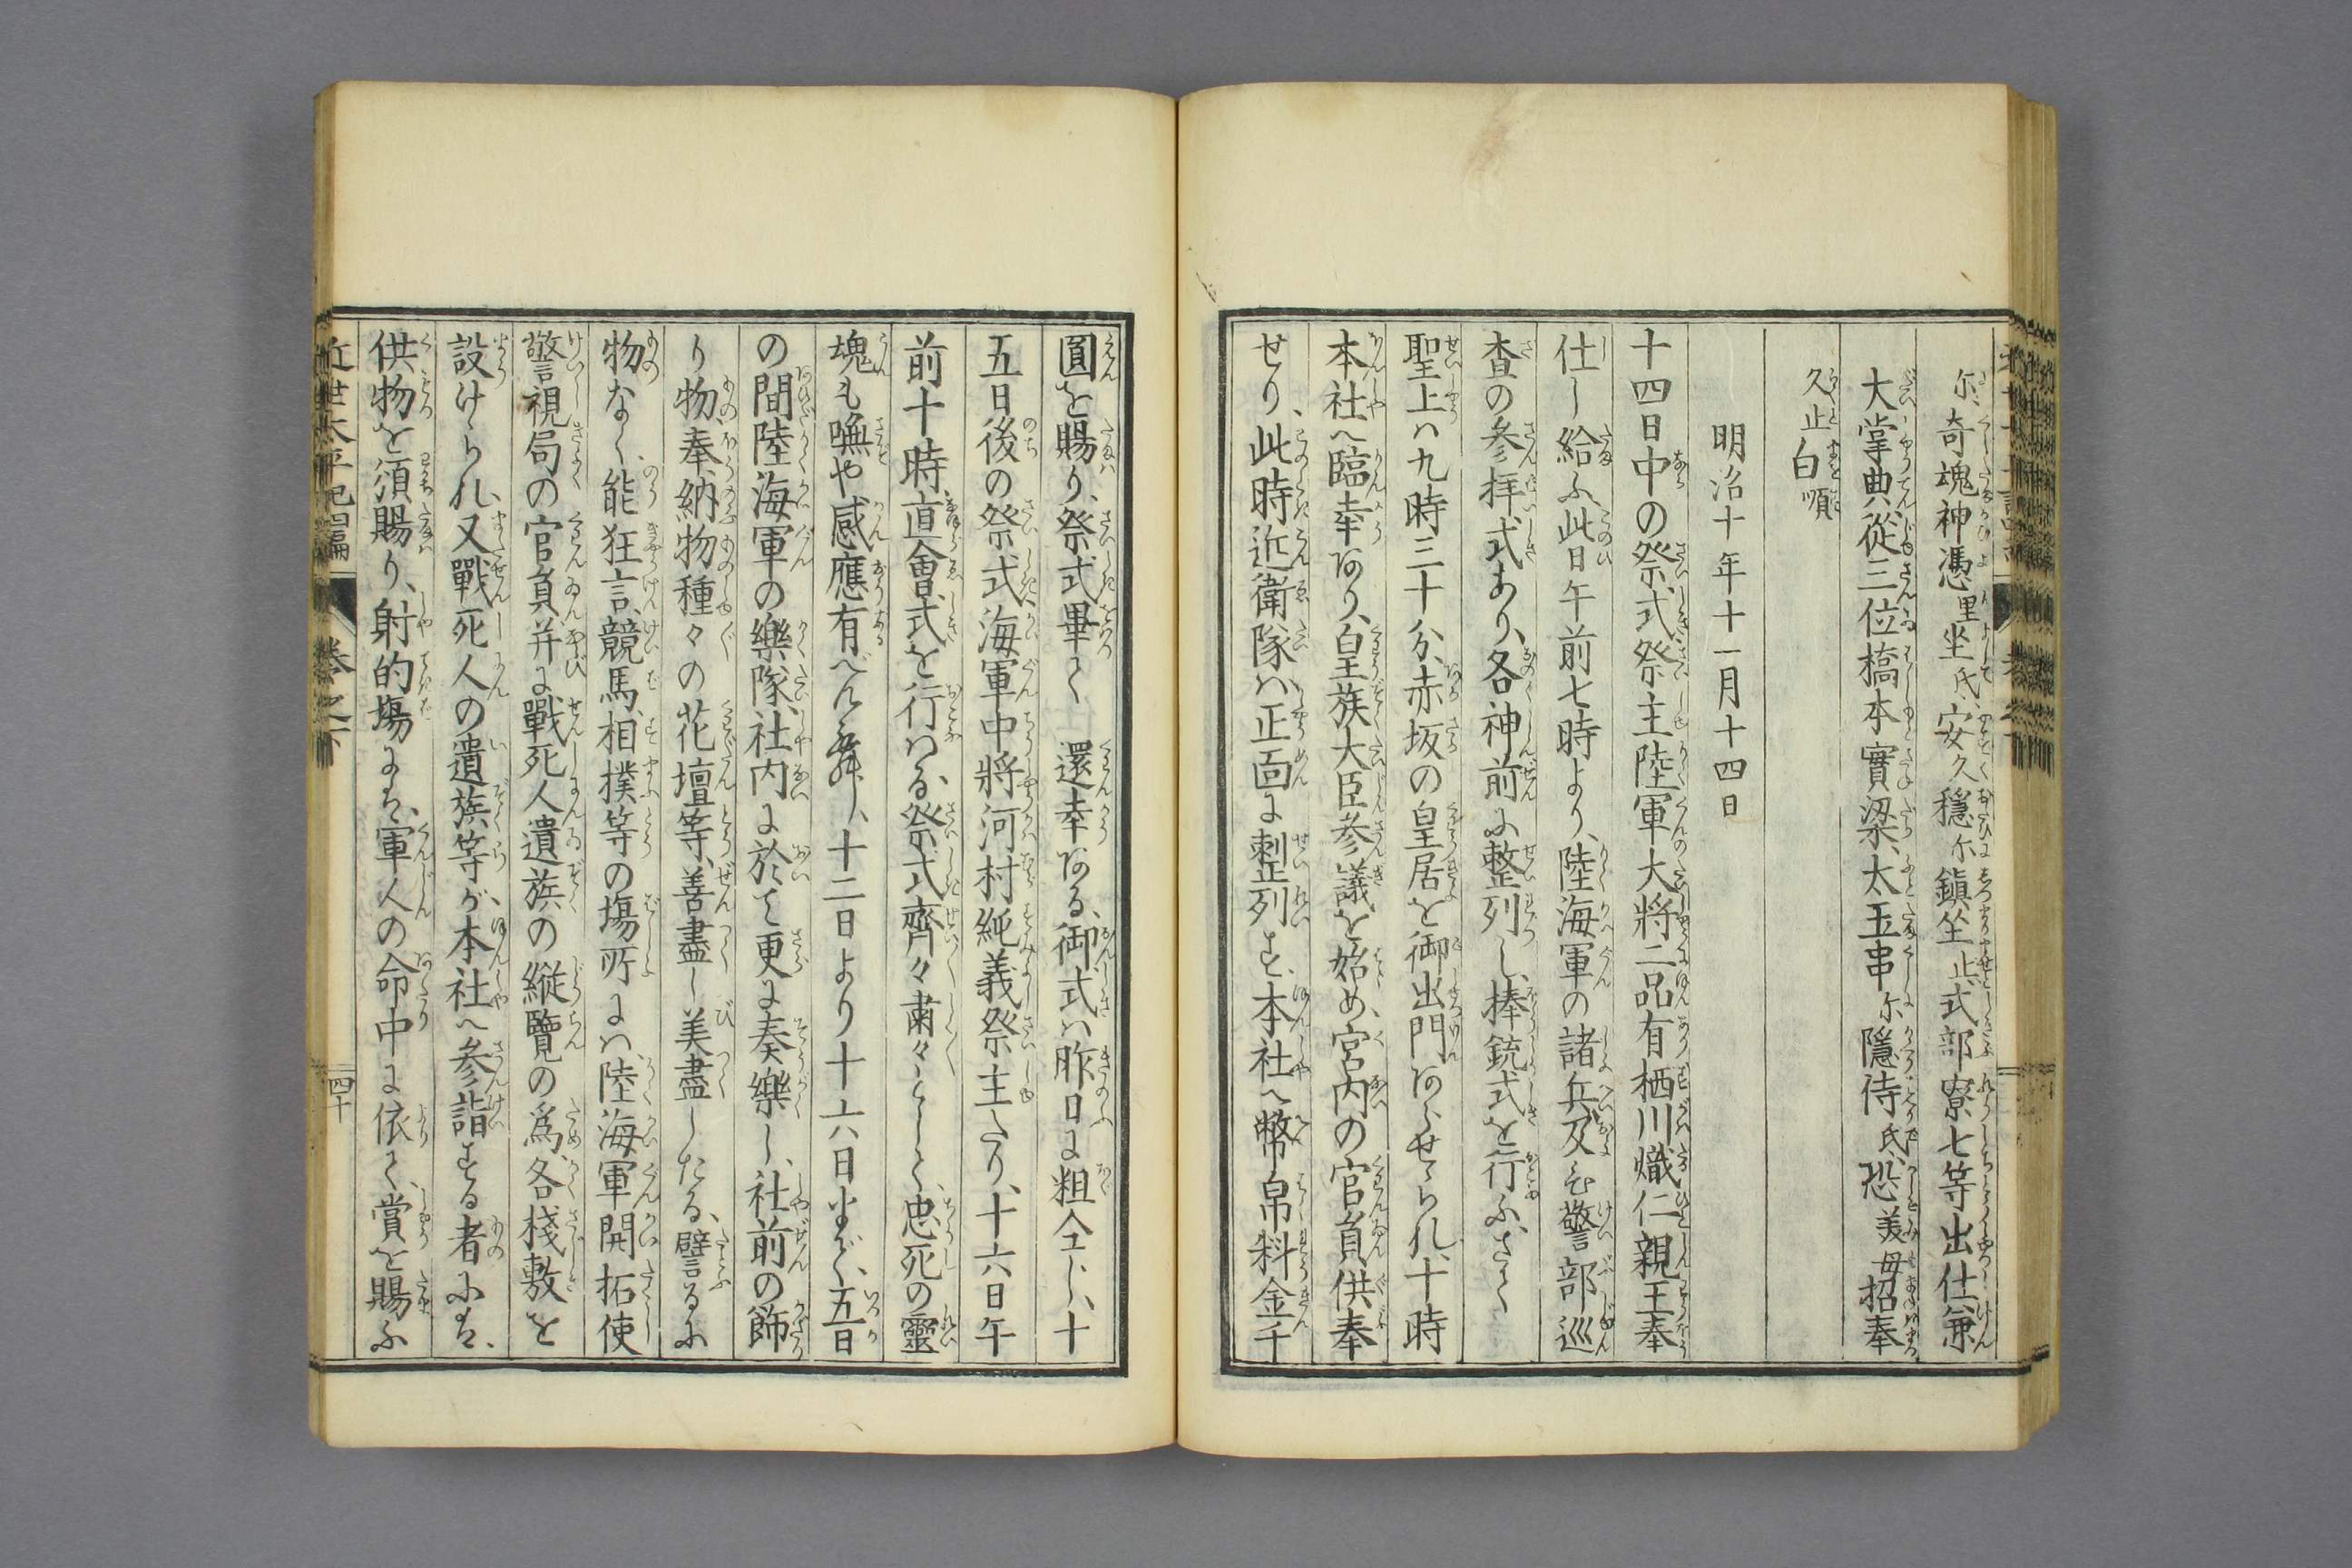 尓、奇魂神憑里坐氐、安久穏尓鎮坐止、式部寮七等出仕兼
大掌典、從三位橋本實梁、太玉串尓隱侍氐、恐美毋招奉
久止白順
明治十年十一月十四日
十四日中の祭式祭主陸軍大將二品有栖川熾仁親王奉
仕し給ふ此日午前七時より、陸海軍の諸兵及び警部巡
査の參拝式あり、各神前に整列し、捧銃式を行ふ、さて
聖上ハ九時三十分、赤坂の皇居を御出門あらせられ、十時
本社へ臨幸あり、皇族大臣參議を始め、宮内の官員供奉
せり、此時近衛隊ハ正面に整列す、本社へ幣帛料金千
圓を賜り、祭式畢て　還幸ある、御式ハ昨日に粗仝し、十
五日後の祭式、海軍中將河村純義祭主たり、十六日午
前十時、直會式を行ハる、祭式齊々肅々として、忠死の靈
魂も嘸や感應有べん歟し、十二日より十六日まで、五日
の間陸海軍の樂隊、社内に於て更に奏樂し、社前の飾
り物、奉納物種々の花壇等、善盡し美盡したる、譬るに
物なく、能狂言、競馬、相撲等の場所にハ、陸海軍開拓使
警視局の官員并に戰死人遺族の縦覽の爲、各棧敷を
設けられ、又戰死人の遺族等が、本社へ參詣する者にハ、
供物を須賜り、射的場にも、軍人の命中に依て、賞を賜ふ
近世太平記二編
巻之下
四十